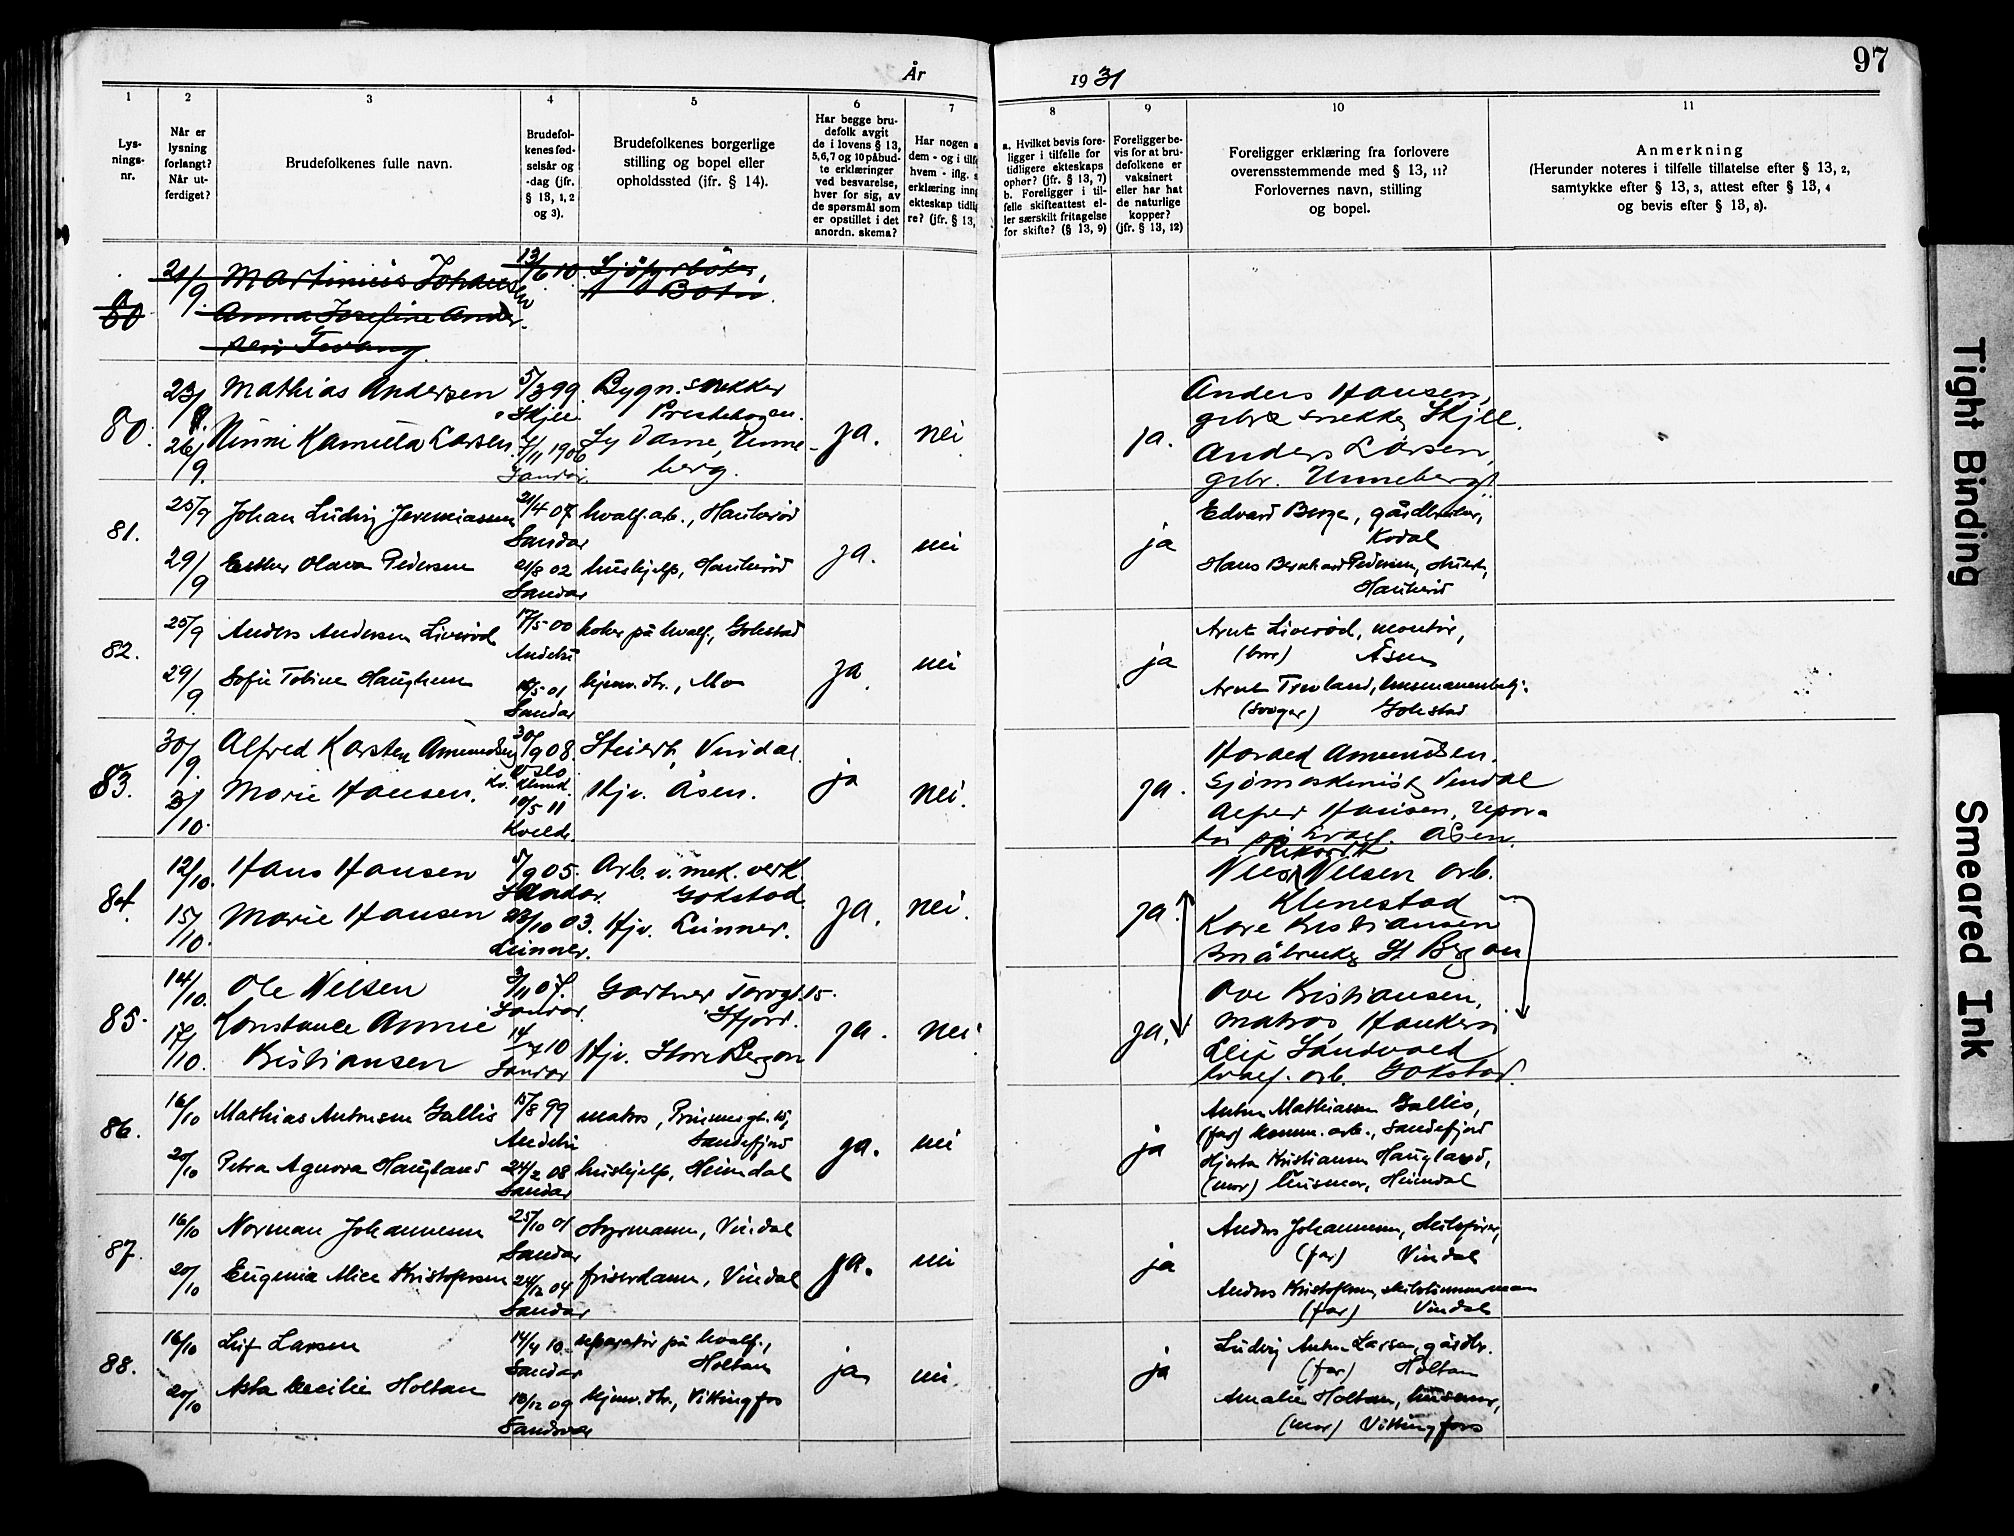 År
1931
97
1
2
3
4
5
6
7
8
9
10
11
Lys-
nings-
nr.
Når er
lysning
forlangt?
Når ut-
ferdiget?
Brudefolkenes fulle navn.
Brudefol-
kenes fød-
selsår og
-dag (jfr.
§ 13, 1, 2
og 3).
Brudefolkenes borgerlige
stilling og bopel eller
opholdssted (ifr. § 14).
Har begge bru-
defolk avgit
de i lovens § 13,
5, 6, 7 og 10 påbud-
te erklæringer
ved besvarelse,
hver for sig, av
de spørsmål som
er opstillet i det
anordn. skema?
Har nogen
dem - og i tilf
hvem - iflg.
erklæring inn
ekteskap tidli
re? (jfr. § 13,
a. Hvilket bevis fore-
ligger i tilfelle for
tidligere ekteskaps
ophør? (jfr. § 13, 7)
b. Foreligger i til-
felle skifteattest el-
ler særskilt fritagelse
for skifte? (§ 13, 9)
Foreligger be-
vis for at bru-
defolkene er
vaksinert
eller har hat
de naturlige
kopper?
(jfr. § 13, 12)
Foreligger erklæring fra forlovere
overensstemmende med § 13, 11?
Forlovernes navn, stilling
og bopel.
Anmerkning
(Herunder noteres i tilfelle tillatelse efter § 13, 2,
samtykke efter § 13, 3, attest efter § 13, 4
og bevis efter § 13, 8).
80 21/9 Martinius Johansen 13/6 10.
Anna Josefine Ander-
sen Tevang.
80. 23/9 Mathias Andersen 5/3 99. Bygn. snekker Anders Hansen,
Skjee Prestehagen. gbr. & snekker Skjee.
26/9. Ninni Kamilla Larsen. 7/11 1906 Sy dame, Unne- ja. nei ja. Anders Larsen,
Sandar. berg. gbr. Unneberg
81. 25/9 Johan Ludvig Jeremiassen 21/4 07. hvalf. arb., Haukerød Edvard Berge, gårdbruker,
Sandar ja. nei ja Kodal
29/9 Esther Olava Pedersen 21/8 02 hushjelp, Haukerød Hans Bernhard Pedersen, stuert,
Sandar Haukerød
82. 25/9 Anders Andersen Liverød 17/5 00 koker på hvalf., Gokstad Arnt Liverød, montør,
Andebu ja nei ja (bror) Åsen
29/9. Sofie Tobine Haughem 16/5 01 hjemv. dtr., Mo Arnt Trevland,
Sandar (svoger) Gokstad
83. 30/9. Alfred Karsten Amundsen 30/9 08. Stuert, Vindal. Harald Amundsen.
Oslo ja nei. ja. Sjømaskinist, Vindal
3/10. Marie Hansen. 10/5 11 Hjv. Åsen. Alfred Hansen, repara-
Kvelde. tør på hvalf. Åsen.
84. 12/10. Hans Hansen 5/9 05. Arb. v. mek. verk. Nils Rikard Nilsen arb.
Sandar. Gokstad. ja. nei. ja. Klinestad
15/10. Marie Hansen 23/10 03. Hjv. Lunner. Kåre Kristiansen
Lunner. småbruker St Bergan
85. 14/10. Ole Nilsen 3/11 07. Gartner Torvgt. 15. Ove Kristiansen,
Sandar. Sfjord. matros, Haukerød
17/10. Constance Annie 14/4 10 ja. nei ja. Leif Sandvold
Kristiansen Sandar Hjv. Store Bergan hvalf. arb. Gokstad.
86. 16/10 Mathias Antonsen Gallis 15/8 99 matros, Prinsensgt. 15, Anton Mathiassen Gallis,
Andebu Sandefjord ja. nei ja (far) komm. arb., Sandefjord
20/10 Petra Agnora Haugland 24/2 08 hushjelp, Heimdal Hjerta Kristiansen Haugland,
Sandar (mor) husmor, Heimdal
87. 16/10 Norman Johannessen 25/10 01 styrmann, Vindal Anders Johannessen, skibsfører,
Sandar ja. nei ja (far) Vindal
20/10 Eugenie Alice Kristofersen 24/12 04 friserdame, Vindal Anders Kristofersen, skibstimmermann
Sandar (far) Vindal
88. 16/10 Leif Larsen 14/4 10. reparatør på hvalf., Ludvig Anton Larsen, gårdbr.
Sandar Holtan ja nei ja (far) Holtan
20/10 Asta Cecilie Holtan 10/12 09 hjemv. dtr., Vittingfos Amalie Holtan, husmor,
Sandsvær (mor) Vittingfoss
Tight Binding
Smeared Ink